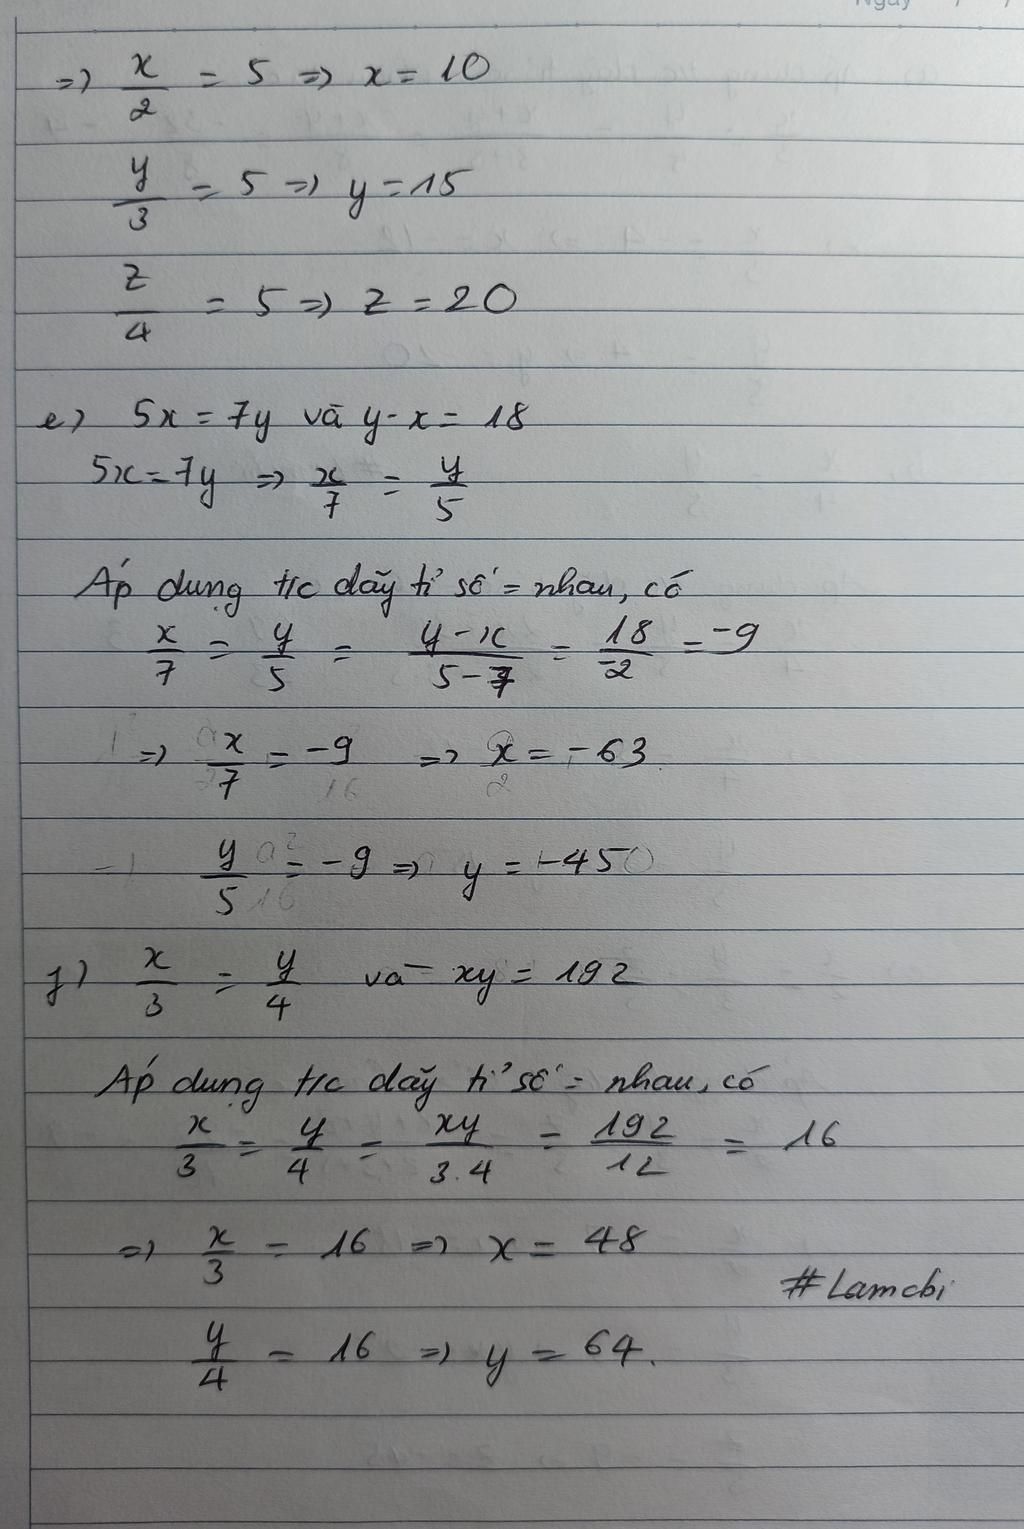 Ngày
=> x/2 = 5 => x = 10
y/3 = 5 => y = 15
z/4 = 5 => z = 20
e) 5x = 7y và y - x = 18
5x = 7y => x/7 = y/5
Áp dụng t/c dãy tỉ số = nhau, có
x/7 = y/5 = y-x/5-7 = 18/-2 = -9
=> x/7 = -9 => x = -63
y/5 = -9 => y = -45
f) x/3 = y/4 và xy = 192
Áp dụng t/c dãy tỉ số = nhau, có
x/3 = y/4 = xy/3.4 = 192/12 = 16
=> x/3 = 16 => x = 48
#Lamchi
y/4 = 16 => y = 64.